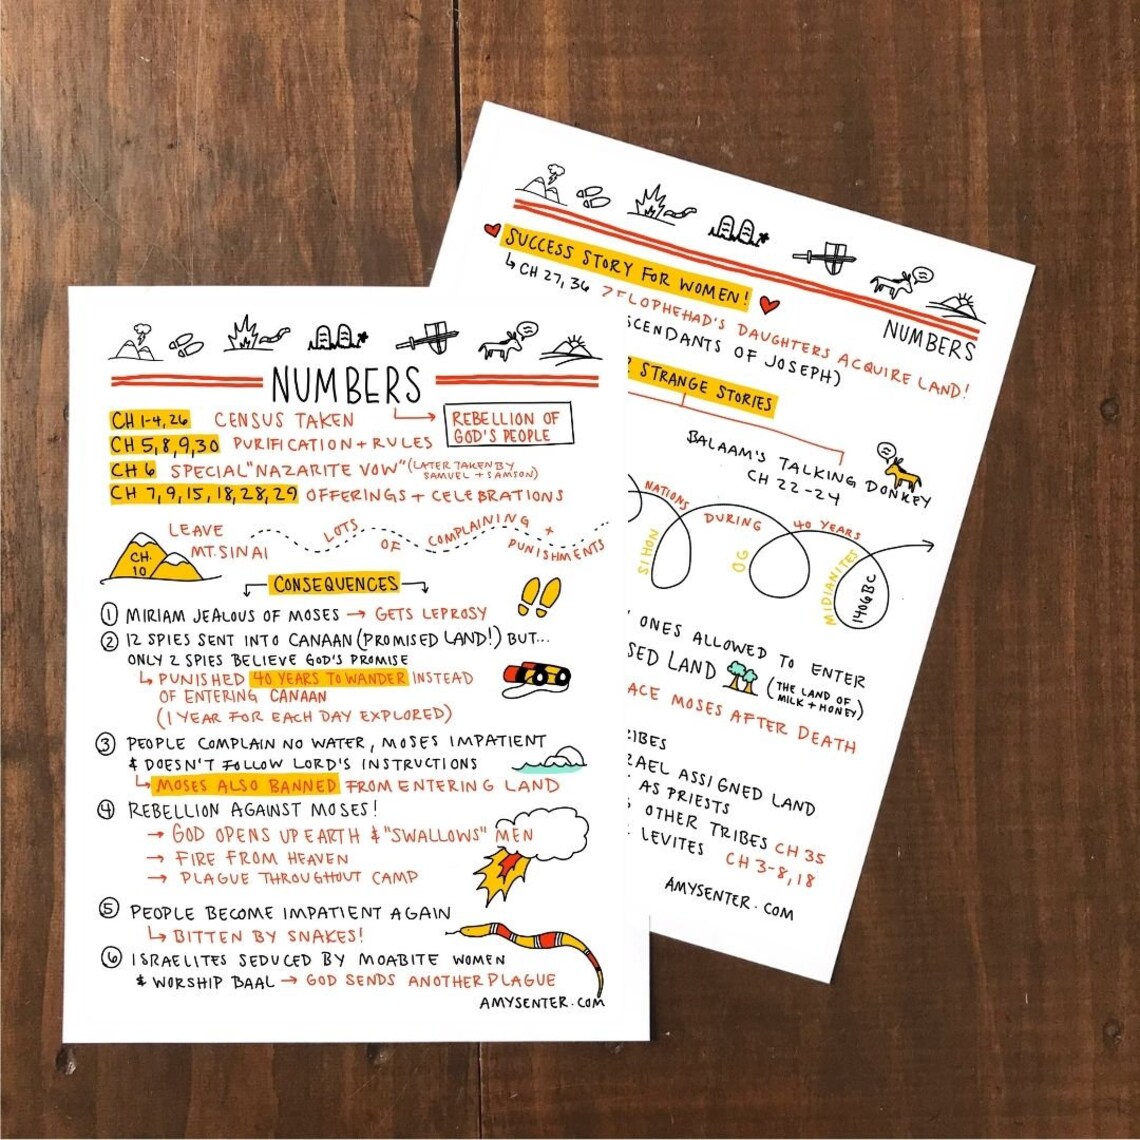 NUMBERS
CH 1-4, 26 CENSUS TAKEN
REBELLION OF
GOD'S PEOPLE
CH 5,8,9,30 PURIFICATION + RULES
CH 6 SPECIAL "NAZARITE VOW" (LATER TAKEN BY
SAMUEL + SAMSON)
CH 7, 9, 15, 18, 28, 29 OFFERINGS + CELEBRATIONS
CH. 10
LEAVE
MT. SINAI
LOTS OF COMPLAINING + PUNISHMENTS
CONSEQUENCES
1 MIRIAM JEALOUS OF MOSES → GETS LEPROSY
2 12 SPIES SENT INTO CANAAN (PROMISED LAND!) BUT...
ONLY 2 SPIES BELIEVE GOD'S PROMISE
↳ PUNISHED 40 YEARS TO WANDER INSTEAD
OF ENTERING CANAAN
(1 YEAR FOR EACH DAY EXPLORED)
3 PEOPLE COMPLAIN NO WATER, MOSES IMPATIENT
& DOESN'T FOLLOW LORD'S INSTRUCTIONS
↳ MOSES ALSO BANNED FROM ENTERING LAND
4 REBELLION AGAINST MOSES!
→ GOD OPENS UP EARTH & "SWALLOWS" MEN
→ FIRE FROM HEAVEN
→ PLAGUE THROUGHOUT CAMP
5 PEOPLE BECOME IMPATIENT AGAIN
↳ BITTEN BY SNAKES!
6 ISRAELITES SEDUCED BY MOABITE WOMEN
& WORSHIP BAAL → GOD SENDS ANOTHER PLAGUE
AMYSENTER.COM
NUMBERS
SUCCESS STORY FOR WOMEN!
↳ CH 27, 36 ZELOPHEHAD'S DAUGHTERS ACQUIRE LAND!
OF JOSEPH)
STRANGE STORIES
BALAAM'S TALKING DONKEY
CH 22-24
NATIONS DURING 40 YEARS
SIHON
OG
MIDIANITES
1406BC
ONES ALLOWED TO ENTER
LAND
(THE LAND OF
MILK + HONEY)
MOSES AFTER DEATH
ASSIGNED LAND
AS PRIESTS
OTHER TRIBES CH 35
LEVITES CH 3-8, 18
AMYSENTER.COM